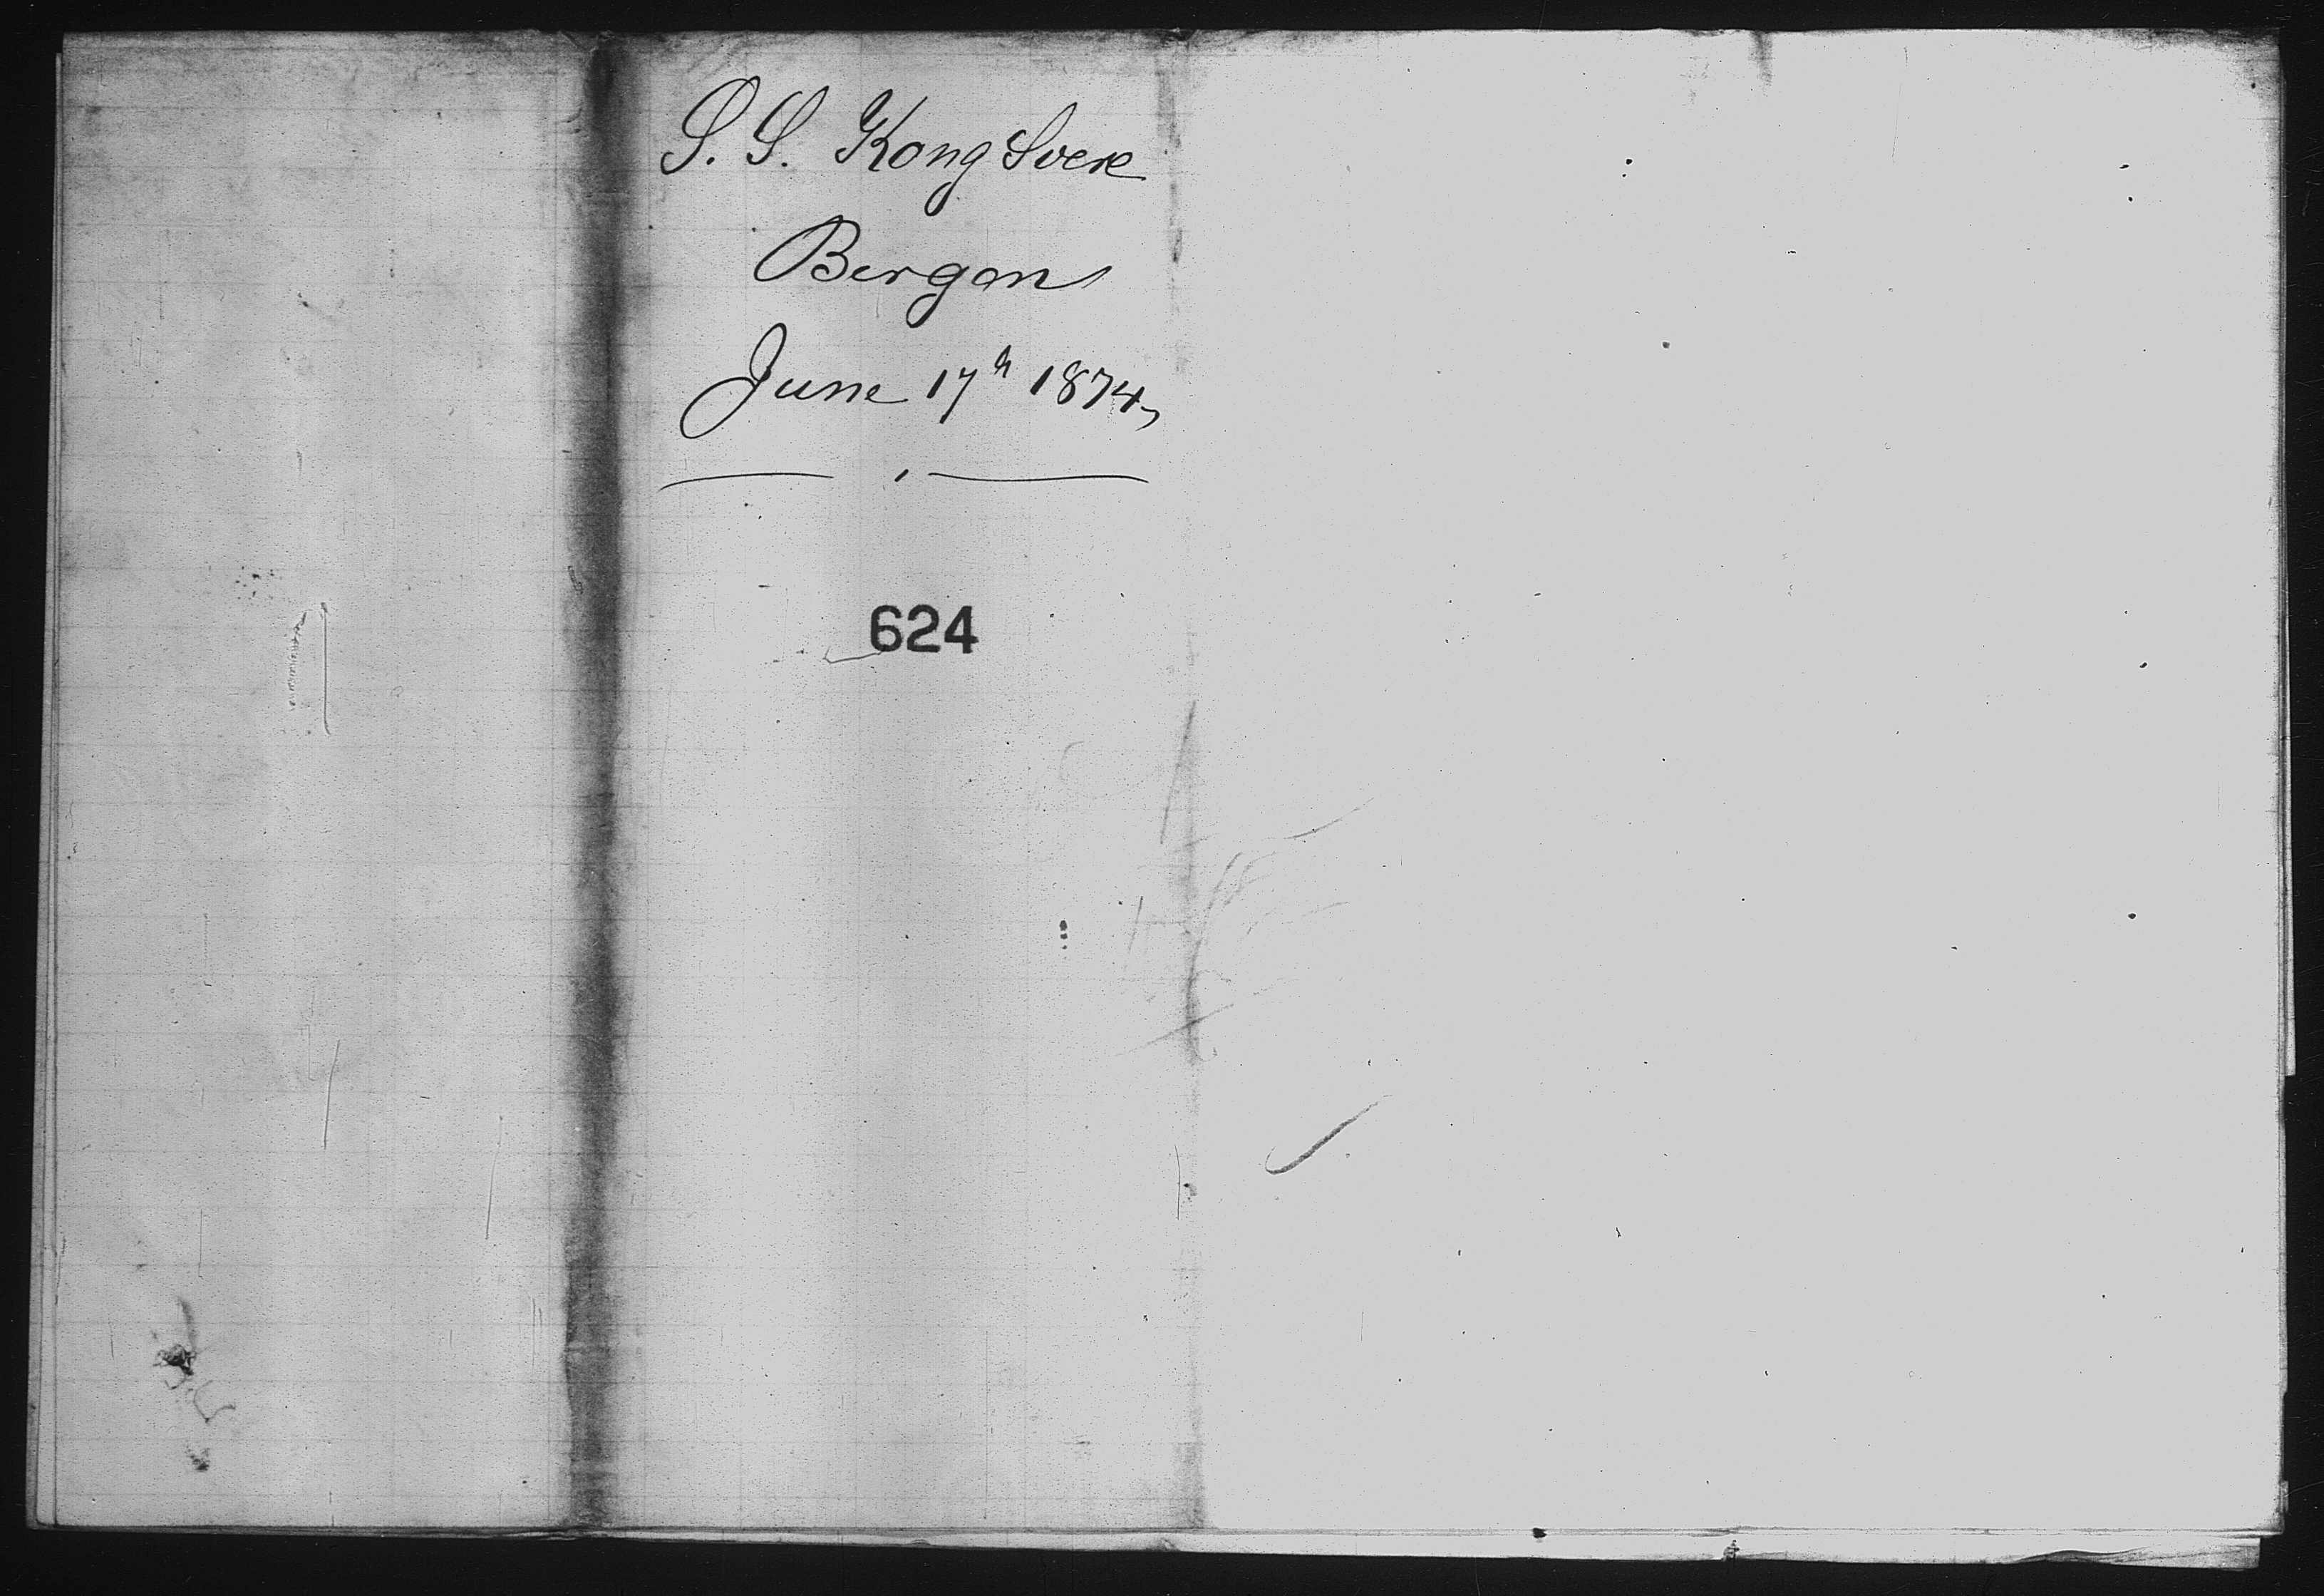 S. S. Kong Svere
Bergen
June 17h 1874
624